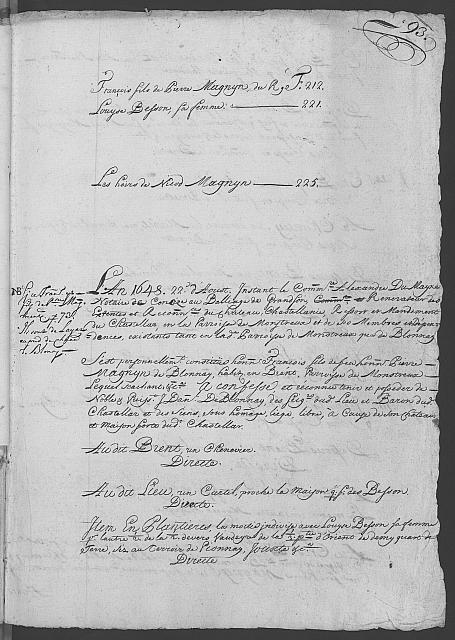 93.
François fils de Pierre Magnyn, du R. ge F. 212.
Louyse Besson, sa femme. 221.
Les hoirs de Nicod Magnyn 225.
L'An 1648. 22.e d'Aoust, Instant le Comm.re Alexandre Du Mayne
Notaire de au Balliage de Grandson, Renovateur des
Extentes et Reconn.ces du Chateau, Chastellanie Ressort et Mandement
du Chastellar en la Parroisse de Monstreux et de ses Membres et depen-
dences, existants tant en lad. Parroisse de Monstreux que de Blonnay
S'est personnellem.t constitué honn. François fils de feu honn. Pierre
Magnyn de Blonnay, habit. en Brent, Parroisse de Monstreux
Lequel Sachant &c.a A confessé et reconneu tenir et posseder de
Noble & Puiss.t J. Den. De Blonnay des Seig.rs dud. Lieu et Baron dud.
Chastellar et des Siens, sous homage, liege libre, à Cause de son Chateau
et Maison forte dud. Chastellar.
Audit Brent, un Chenevier
Directe.
Audit Lieu, un Curtil, proche la Maison q. fi. des Besson
Directe.
Item En Plantieres la moitié indivise avec Louyse Besson sa femme
p.r l'autre &c. de la &c. devers Vaudeyres de la d'Orient de demy quart de
Terre, sis au Terroir de Pionnay, Jouxte &c.a
Directe